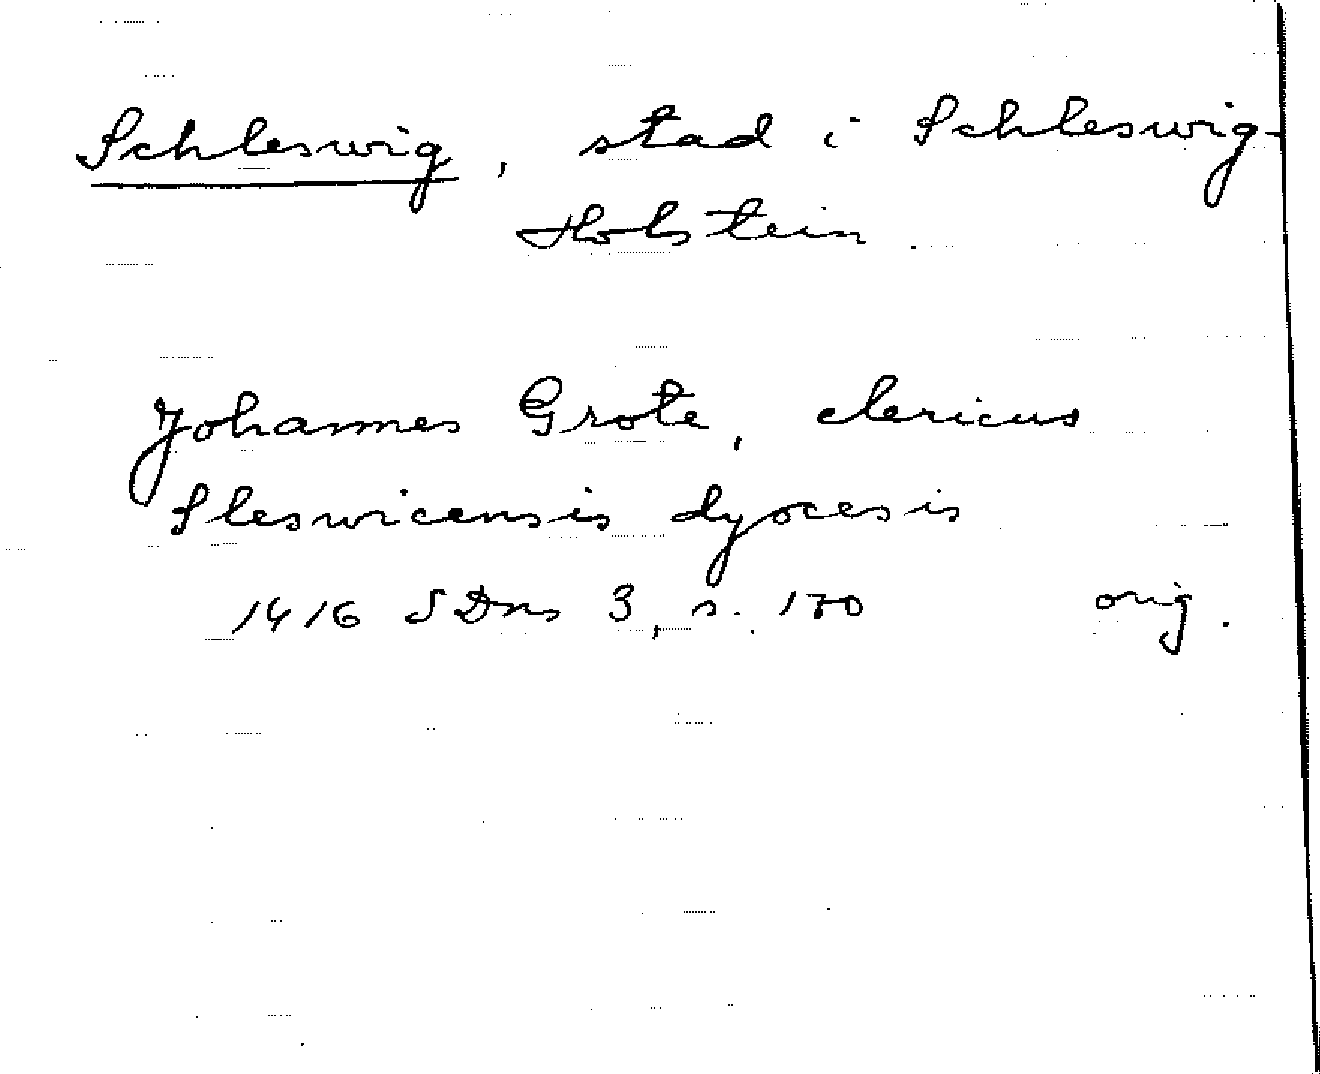 Schleswig, stad i Schleswig-
Holstein
Johannes Grote, clericus
Sleswicensis dyocesis
1416 SDns 3, s. 170 orig.